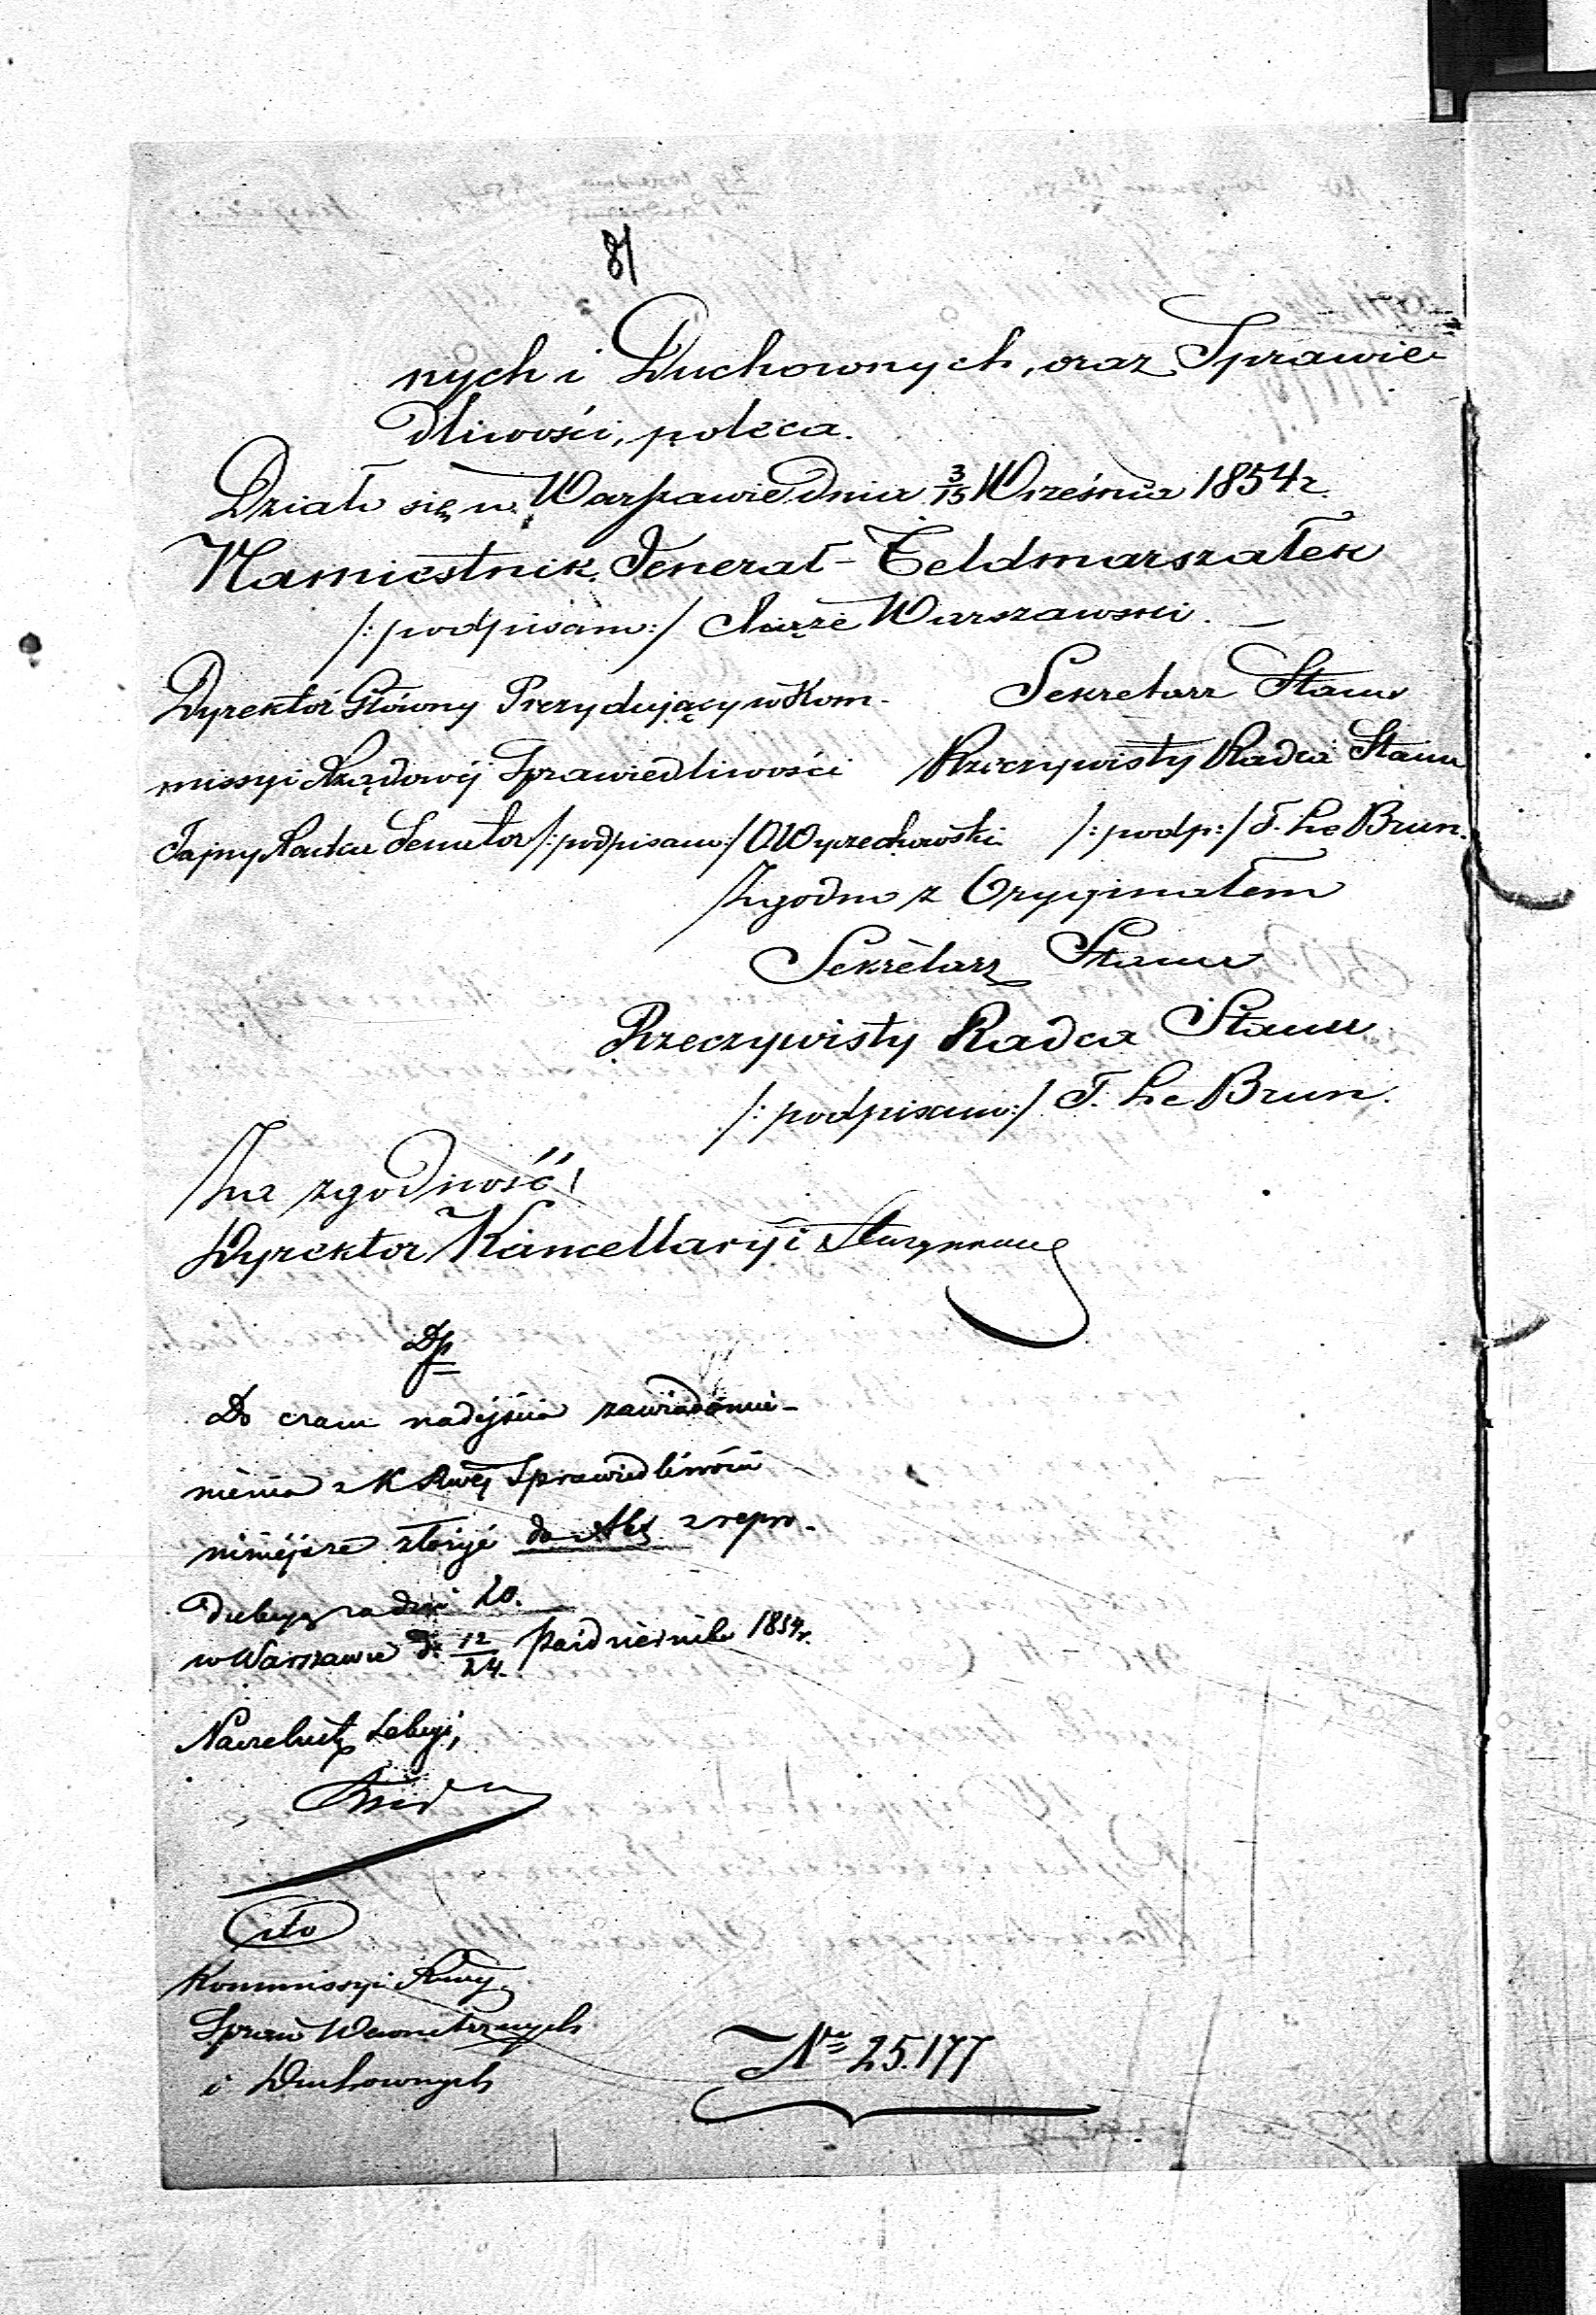 81
nych i Duchownych, oraz Sprawie-
dliwości, poleca.
Działo się w Warszawie dnia 3/15 Września 1854 r.
Namiestnik, Jenerał-Feldmarszałek
/:podpisano:/ Xiąże Warszawski.
Dyrektór Główny Prezydujący w Kom-
missyi Rządowéj Sprawiedliwości
Tajny Radca Senator /:podpisano:/ Wyczechowski
Sekretarz Stanu
Rzeczywisty Radca Stanu
/:podp:/ T. Le Brun.
Zgodno z Oryginałem
Sekretarz Stanu
Rzeczywisty Radca Stanu
/:podpisano:/ T. Le Brun.
Za zgodność,
Dyrektor Kancellaryi
Dp
Do czasu nadejścia zawiadomie-
nienia z K Rwéj Sprawiedliwości
niniéjsze złożyć do Akt z repro-
dukcyą za dni 20.
w Warszawie d. 12/24 Października 1854 r.
Naczelnik Sekcyi,
Cito
Kommissyi Rwéj
Spraw Wewnętrznych
i Duchownych
No 25.177